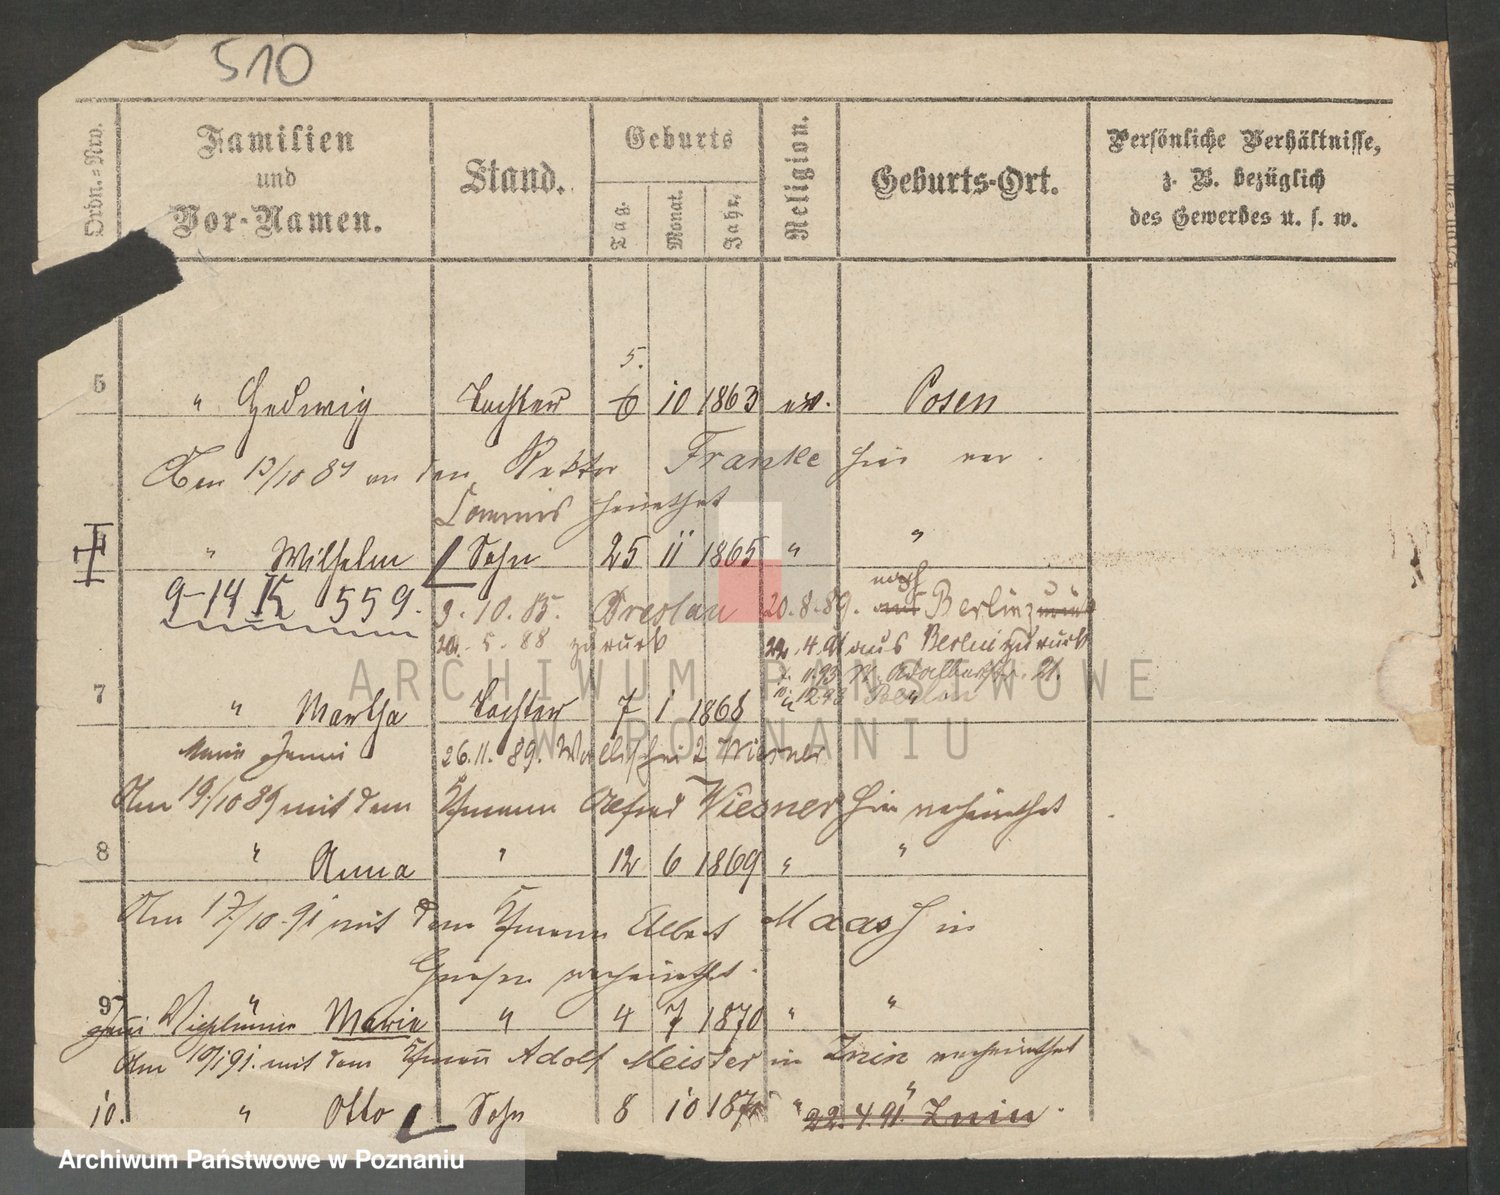 510
Ordn.=Nro.
Familien
und
Vor-Namen.
Stand.
Geburts
Tag.
Monat.
Jahr.
Religion.
Geburts-Ort.
Persönliche Verhältnisse,
z. B. bezüglich
des Gewerbes u. s. w.
5.
6 " Hedwig Tochter 6 10 1863 ev. Posen
Am 13/10 87 an den Rektor Franke hier ver
Commis heirathet
" Wilhelm Sohn 25 11 1865 " "
9-14 K 559.
9.10.85. Breslau 20.8.89. nach Berlin zurück
20.5.88 zurück 22.4.91 aus Berlin zurück
7 " Martha Tochter 7 1 1868
26.11.89. Wiesner
Am 19/10 89 mit dem Kfmann Alfred Wiesner hier verheirathet
8 " Anna " 12 6 1869 " "
Am 17/10.91 mit dem Kfmann Albert Maass in
Gnesen verheirathet.
9 " Marie " 4 7 1870 " "
Am 19/1 91. mit dem Kfmann Adolf Meister in Znin verheirathet
10. " Otto Sohn 8 10 187 " "
22.4.91. Znin.
ARCHIWUM PAŃSTWOWE
W POZNANIU
Archiwum Państwowe w Poznaniu